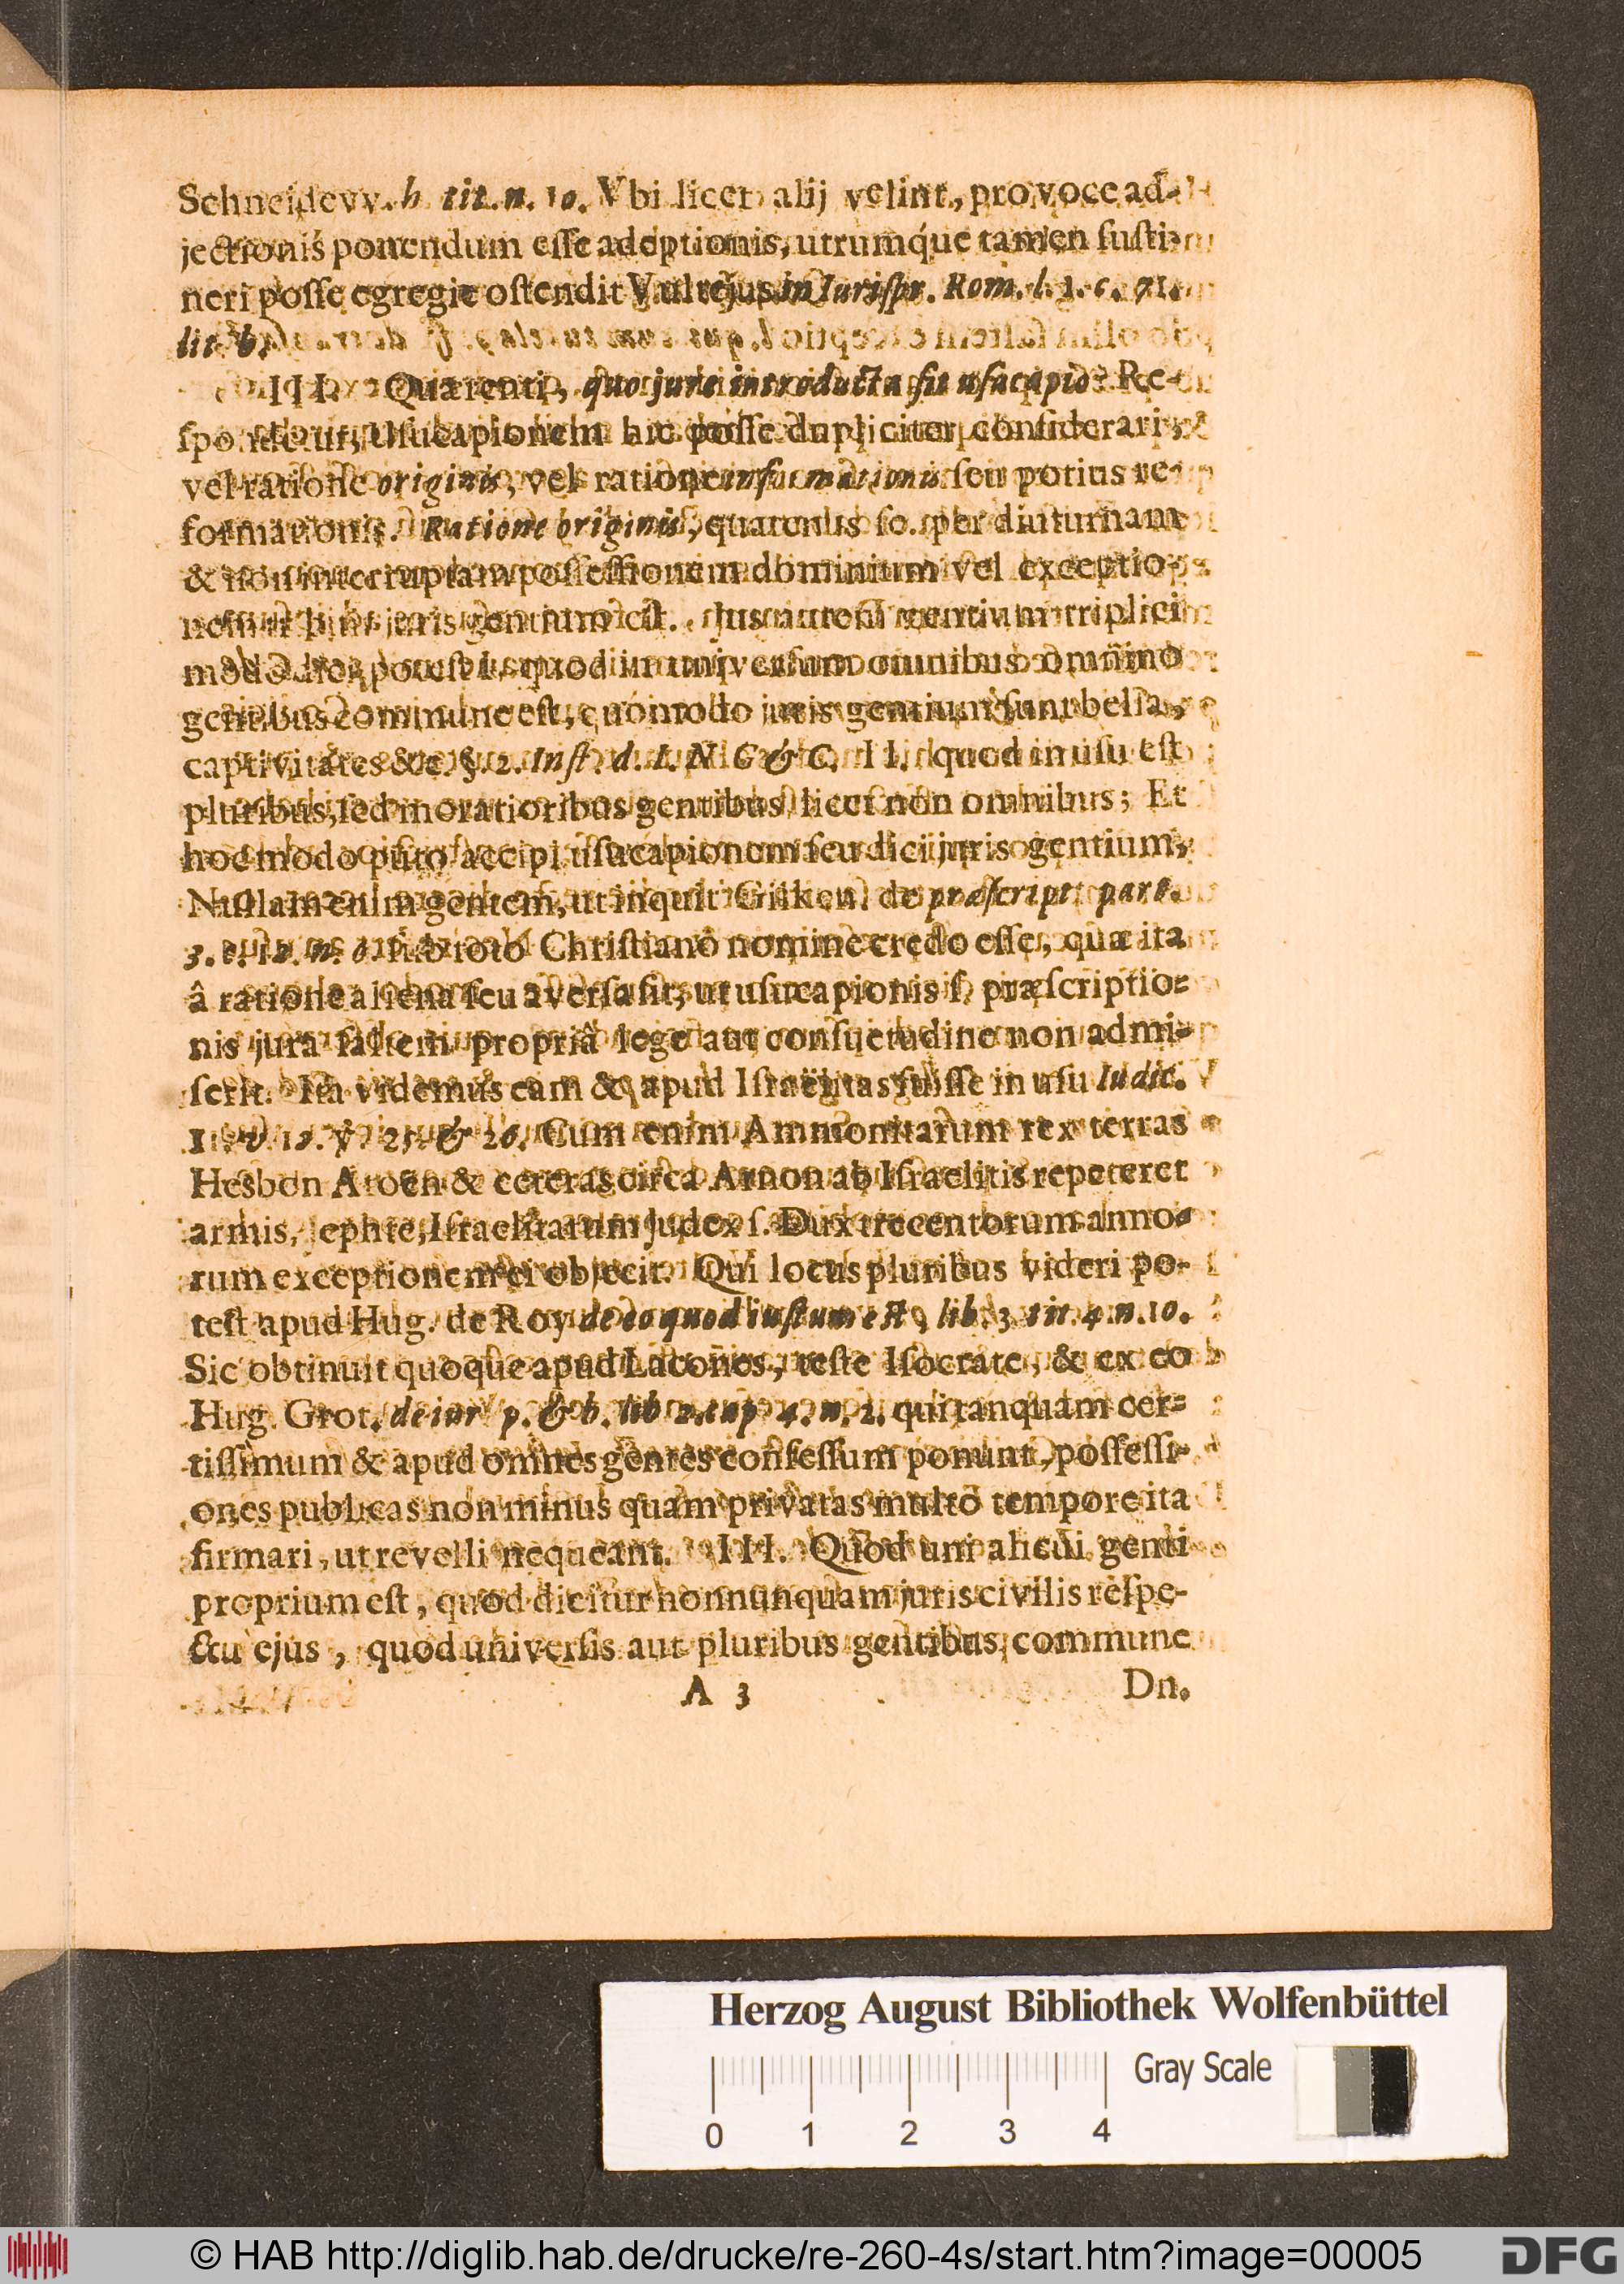 Schneidevv. h. tit. n. 10. Vbi licet alij velint, pro voce ad-
jectionis ponendum esse adeptionis, utrumq́ue tamen susti-
neri posse egregie ostendit Vultejus in Jurispr. Rom. l. 1. c. 71.
lit. b.
III. Quærenti, quo jure introducta sit usucapio? Re-
spondetur, Usucapionem hic posse dupliciter considerari,
vel ratione originis, vel ratione informationis seu potius re-
formationis. Ratione originis, quatenus sc. per diuturnam
& non interruptam possessionem dominium vel exceptio-
juris gentium est. Jus autem gentium triplici
modo dici potest I. quod in universum omnibus omnino
gentibus commune est, quomodo juris gentium sunt bella,
captivitates &c. §. 2. Inst. d. I. N. G & C. II. quod in usu est
pluribus, sed moratioribus gentibus, licet non omnibus; Et
hoc modo puto accipi usucapionem seu dici juris gentium,
Nullam enim gentem, ut inquit Gilken. de præscript. part.
3. toto Christiano nomine credo esse, quæ ita
â ratione aliena seu aversa sit, ut usucapionis s. præscriptio-
nis jura saltem propriâ lege aut consuetudine non admi-
serit. Ita videmus eam & apud Israëlitas fuisse in usu Iudic.
& 26. Cum enim Ammonitarum rex terras
Hesbon Aroën & ceteras circa Arnon ab Israelitis repeteret
armis, Jephte, Israelitarum Judex s. Dux trecentorum anno-
rum exceptionem ei objecit. Qui locus pluribus videri po-
test apud Hug. de Roy de eo quod iustum est, lib. 3. tit. 4. n. 10.
Sic obtinuit quoque apud Lacones, teste Isocrate, & ex eo
Hug. Grot. de iur. p. & b. lib. 2. cap. 4. n. 2. qui tanquam cer-
tissimum & apud omnes gentes confessum ponunt, possessi-
ones publicas non minus quam privatas multo tempore ita
firmari, ut revelli nequeant. III. Quod uni alicui genti
proprium est, quod dicitur nonnunquam juris civilis respe-
ctu ejus, quod universis aut pluribus gentibus commune
A 3 Dn.
Herzog August Bibliothek Wolfenbüttel
Gray Scale
0 1 2 3 4
© HAB http://diglib.hab.de/drucke/re-260-4s/start.htm?image=00005
DFG